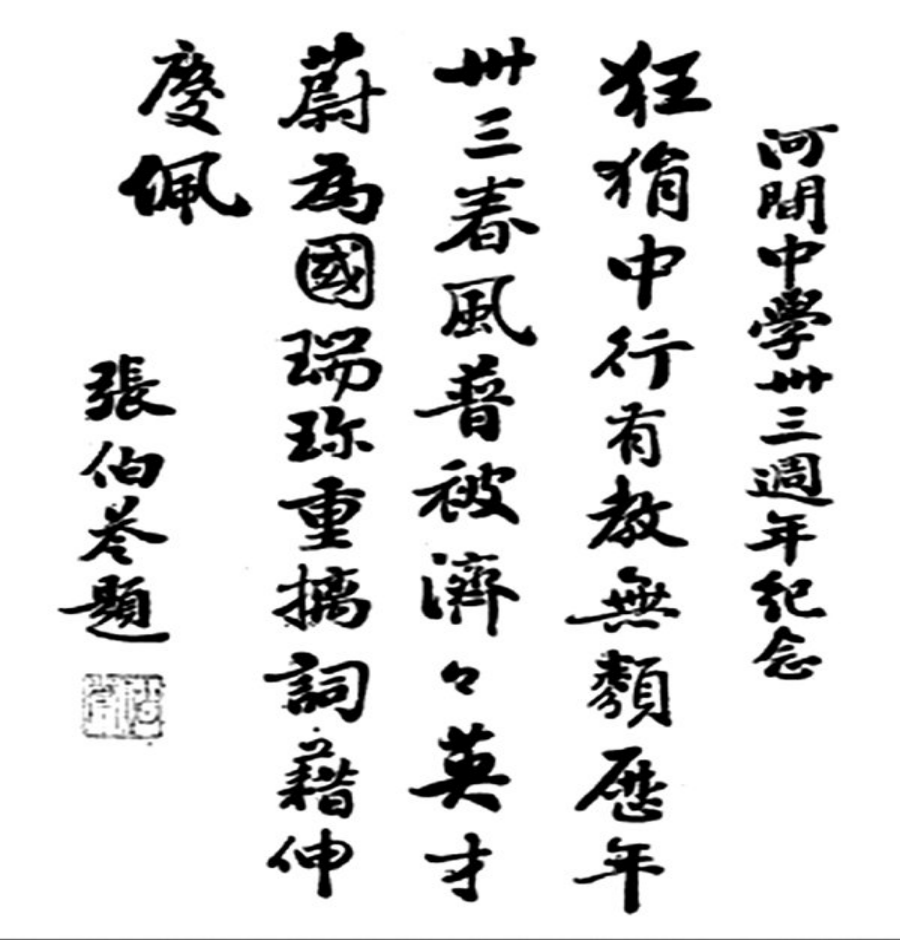 河間中學卅三週年紀念
狂狷中行有教無類歷年
卅三春風普被濟々英才
蔚為國瑞珎重摛詞藉伸
慶佩
張伯苓題